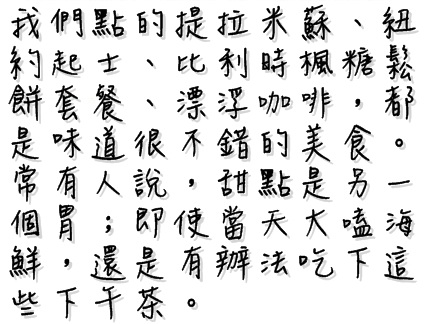 我們點的提拉米蘇、紐
約起士、比利時楓糖鬆
餅套餐、漂浮咖啡，都
是味道很不錯的美食。
常有人說，甜點是另一
個胃；即使當天大嗑海
鮮，還是有辦法吃下這
些下午茶。